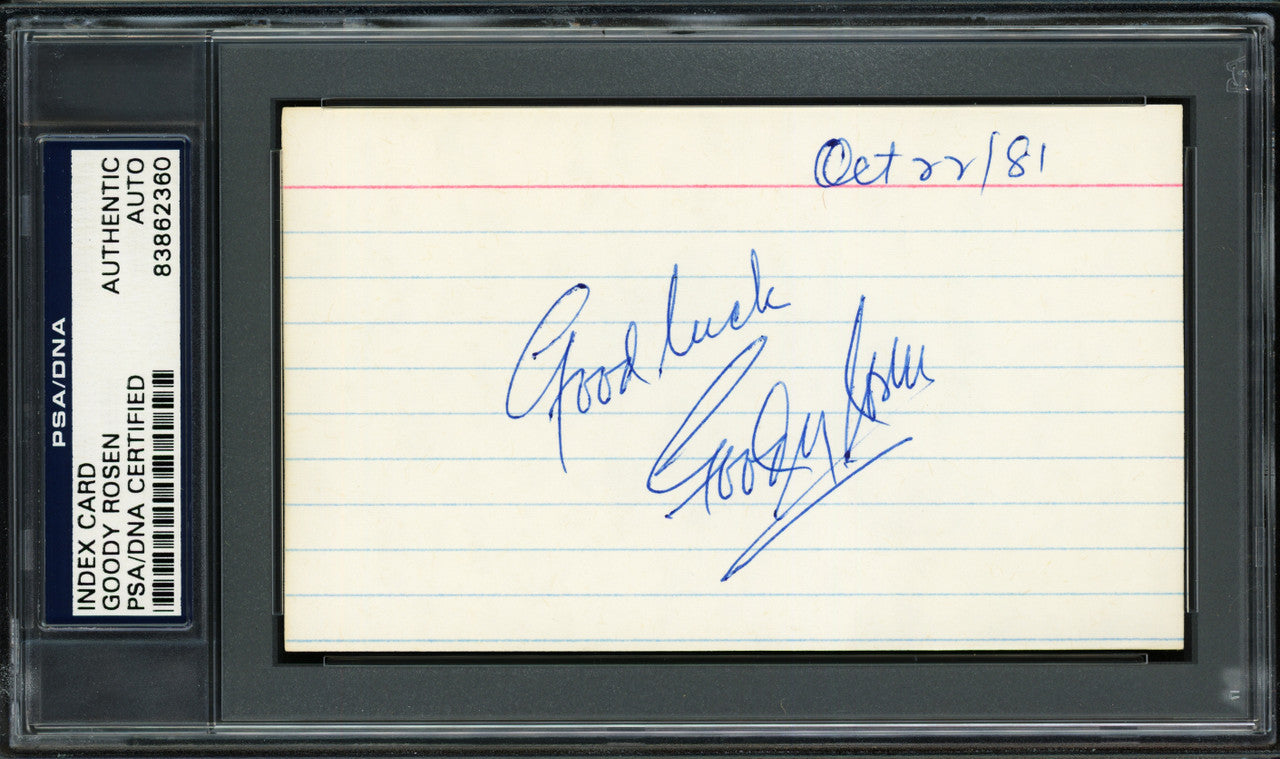 PSA/DNA
INDEX CARD
GOODY ROSEN
PSA/DNA CERTIFIED
AUTHENTIC
AUTO
83862360
Oct 22/81
Good luck
Goody Rosen